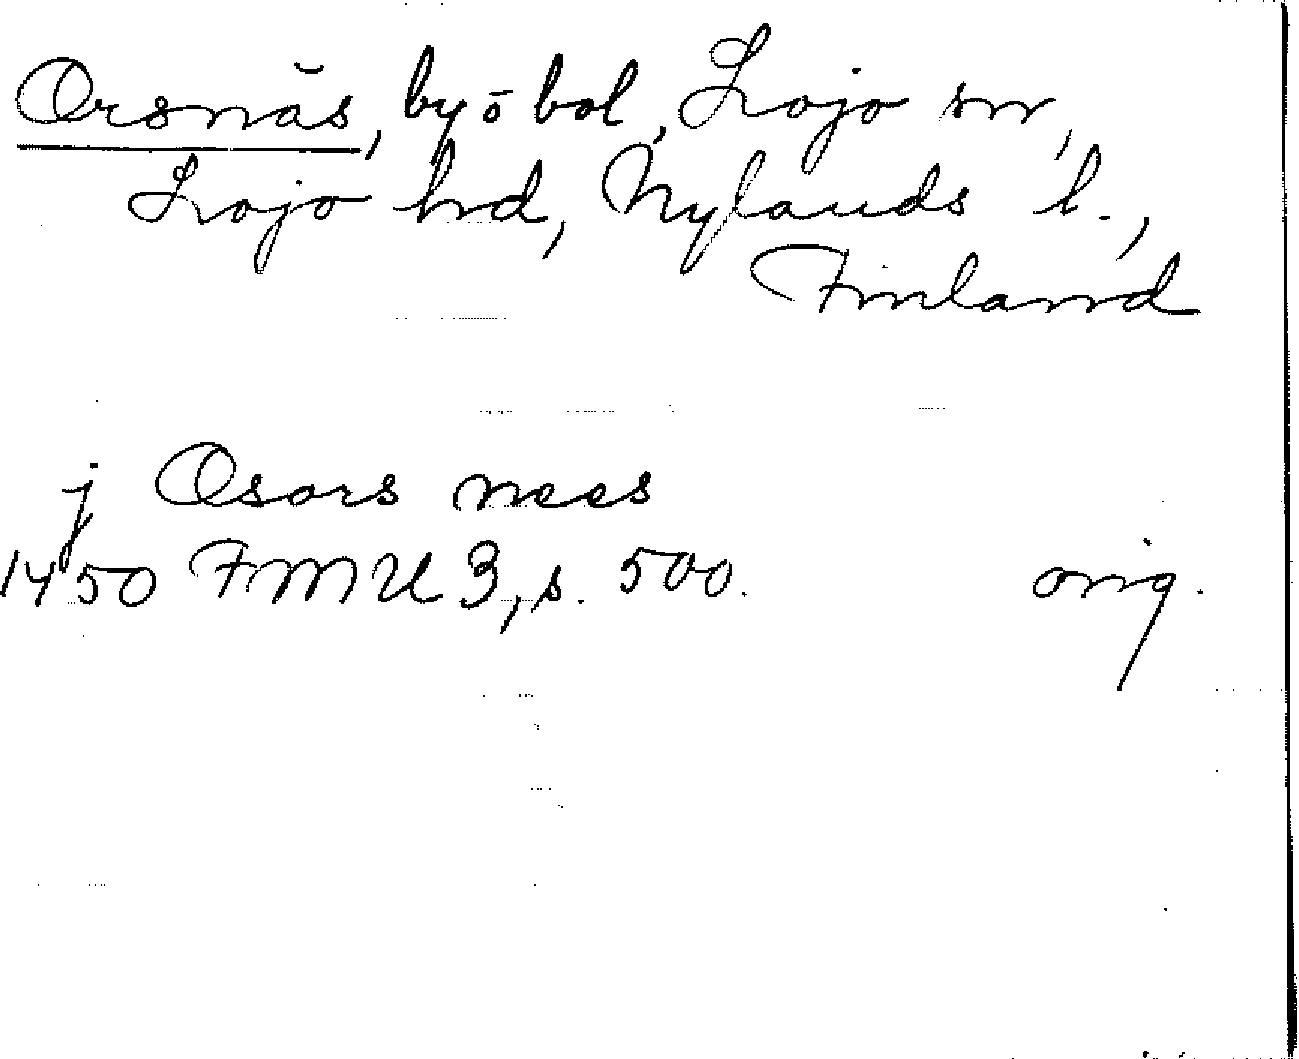 Orsnäs, by ō bol, Lojo sn,
Lojo hrd, Nylands l.,
Finland
j Osors nees
1450 FMU 3, s. 500. orig.